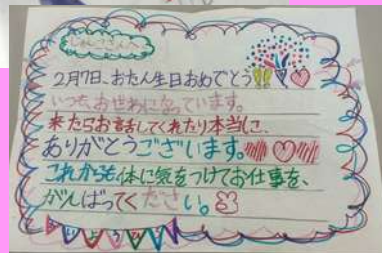 2月7日、おたん生日おめでとう!!
いつも、お世わになっています。
来たらお話してくれたり本当に、
ありがとうございます。
これからも体に気をつけてお仕事を、
がんばってください。